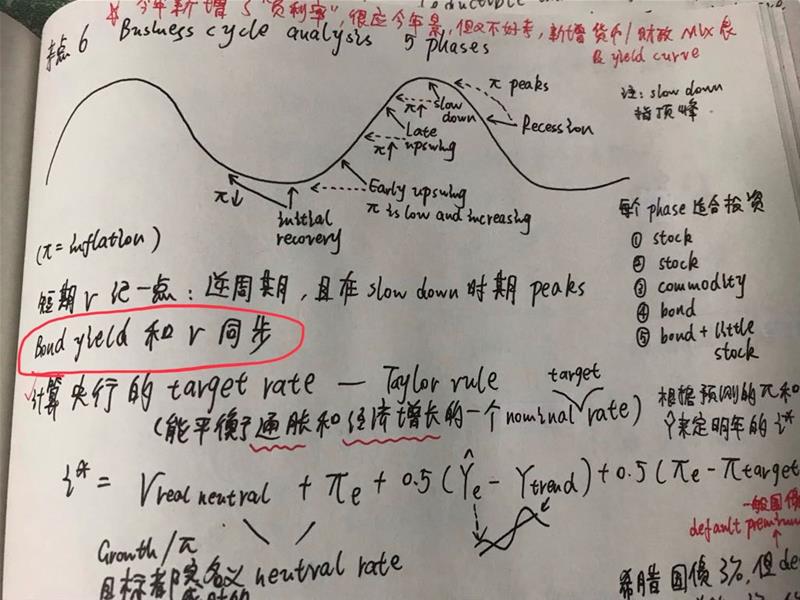 今年新增了"负利率",很应今年景,但又不好考,新增货币/财政 Mix 表
& yield curve
考点 6 Business cycle analysis 5 phases
π peaks
注: slow down
指顶峰
slow down
π↑
Recession
Late upswing
π↑
Early upswing
π is slow and increasing
π↓
initial recovery
(π = inflation)
每个 phase 适合投资
① stock
② stock
③ commodity
④ bond
⑤ bond + little stock
短期 r 记一点: 逆周期, 且在 slow down 时期 peaks
Bond yield 和 r 同步
计算央行的 target rate — Taylor rule
target
(能平衡了通胀和经济增长的一个 nominal rate)
根据预测的 π 和
Ŷ 来定明年的 i*
i* = r real neutral + πe + 0.5 (Ŷe - Ytrend) + 0.5 (πe - πtarget
一般国债
default premium
Growth/π
目标都 名义 neutral rate
希腊国债 3%, 但 de